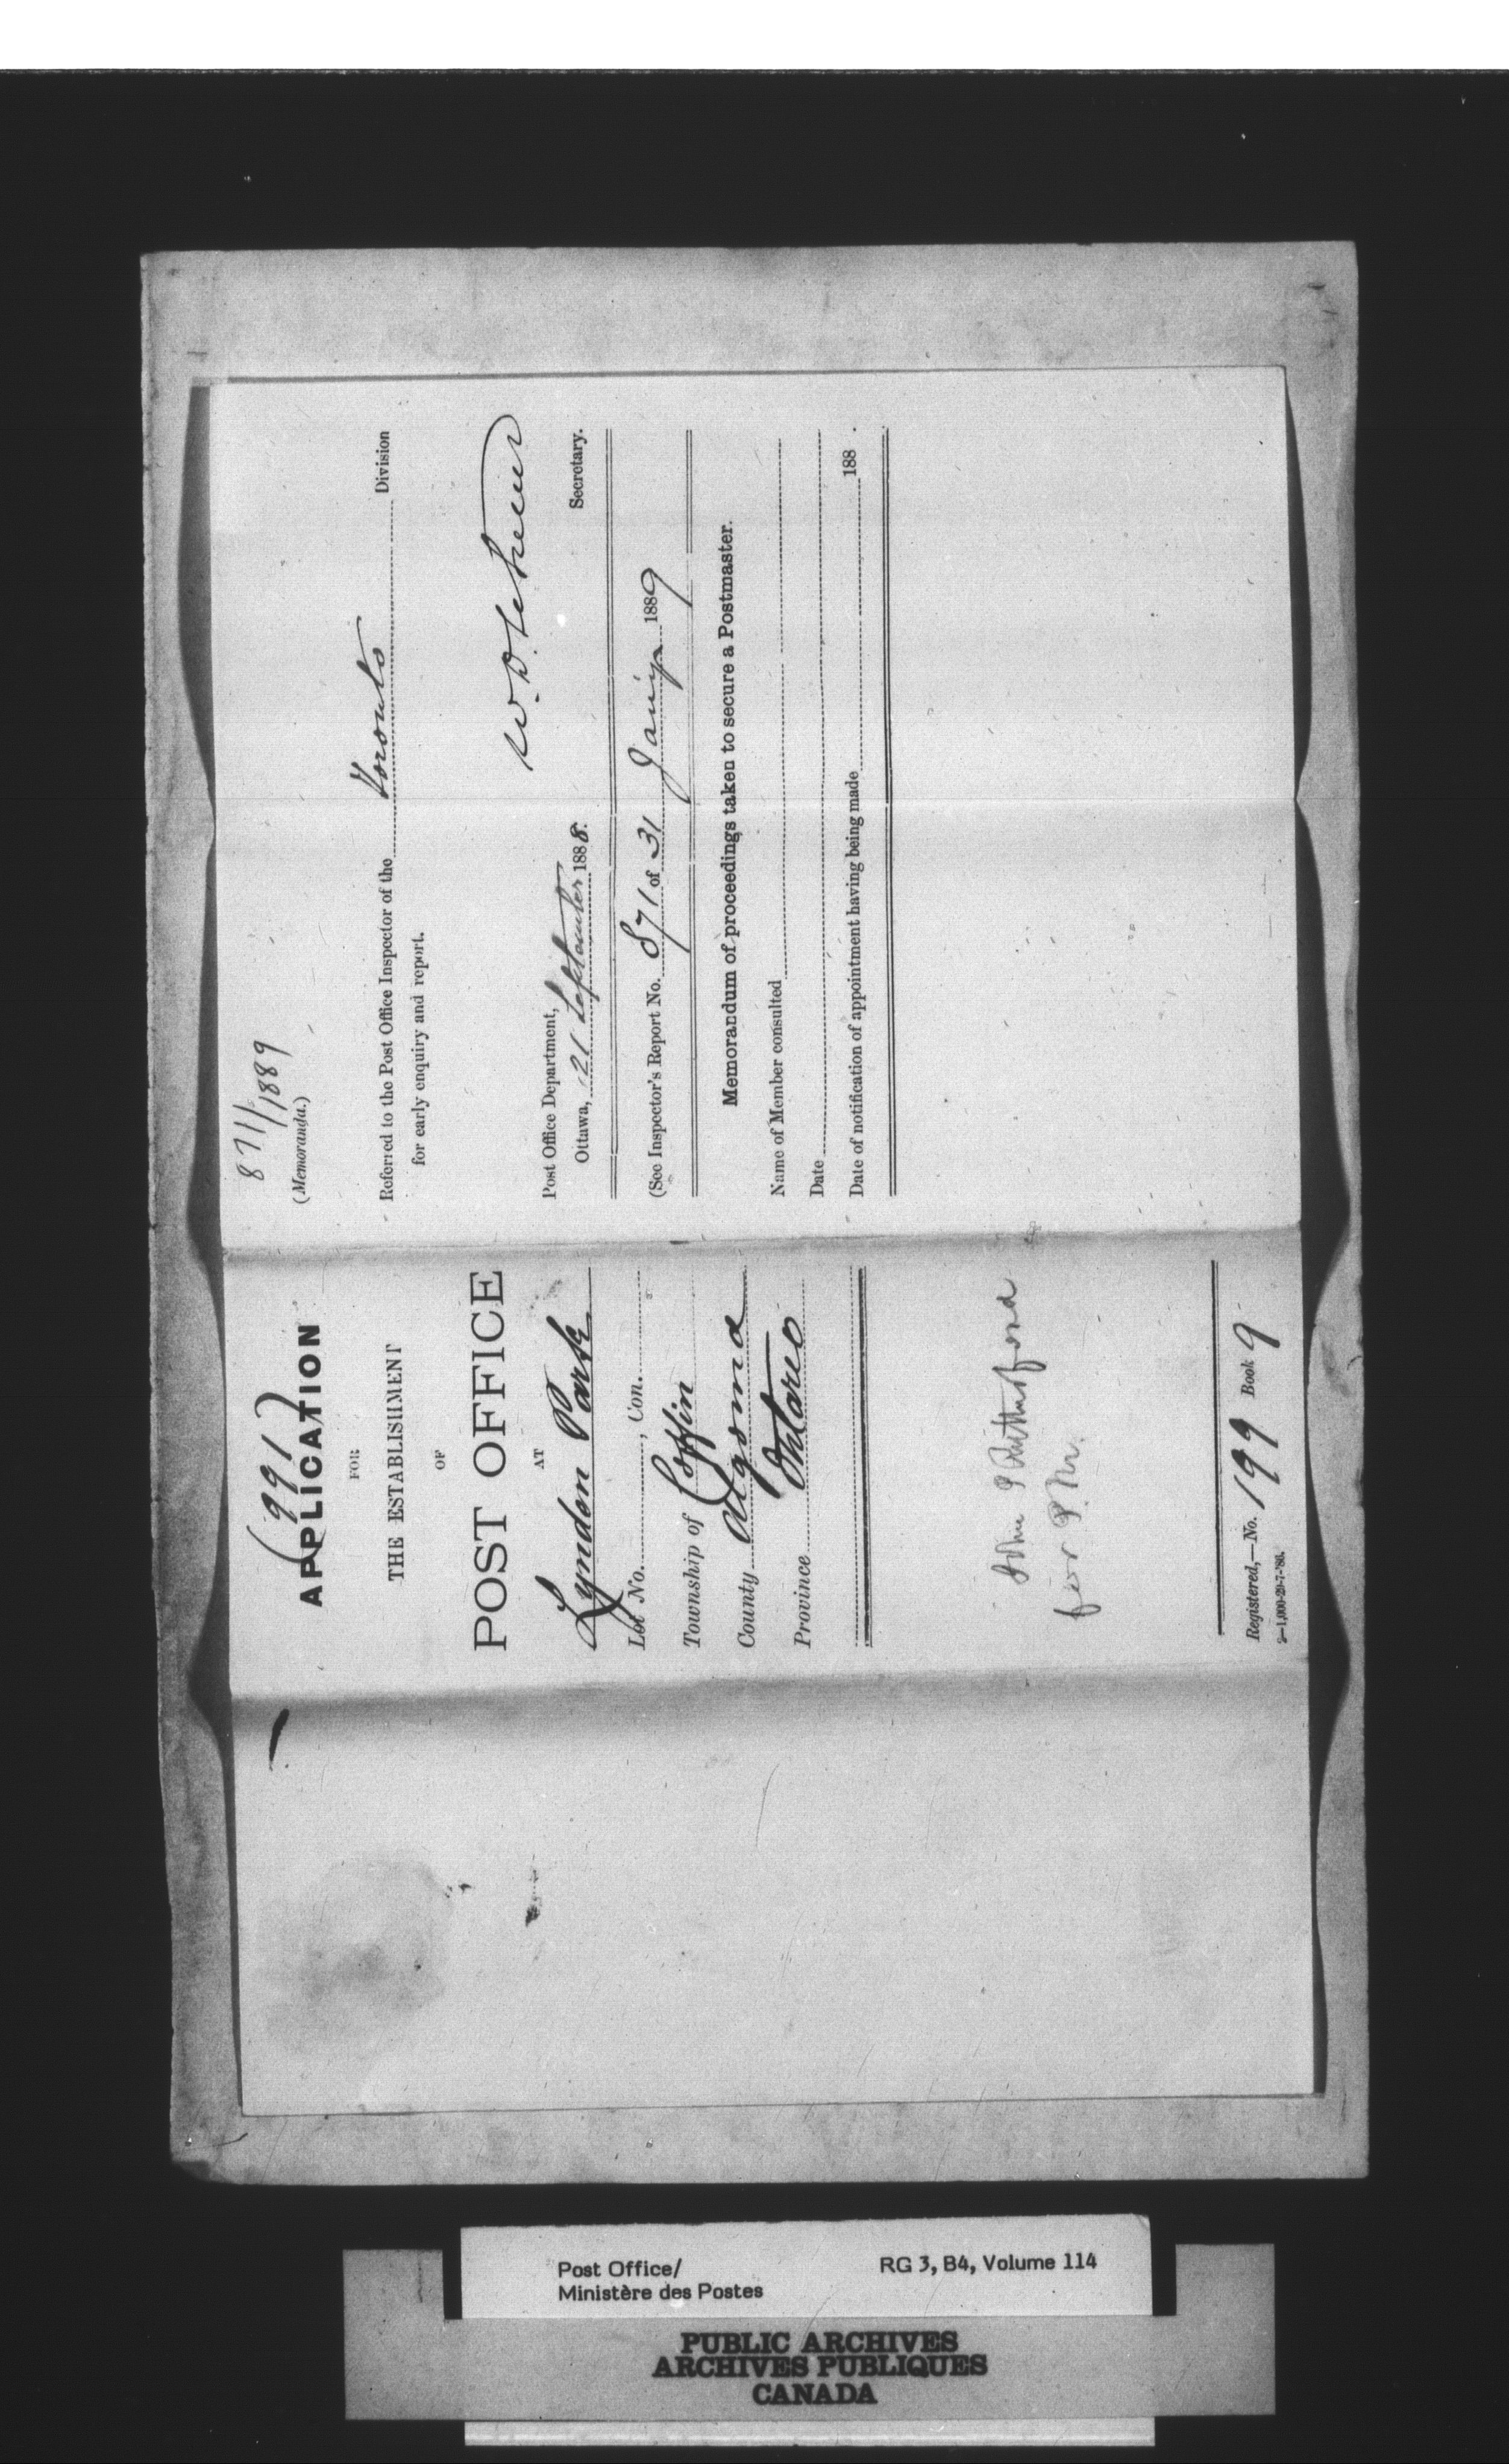 (991)
APPLICATION
FOR
THE ESTABLISHMENT
OF
POST OFFICE
AT
Lyndon Park
Lot No. , Con.
Township of Coffin
County Algoma
Province Ontario
John Rutherford
for P.M.
Registered,—No. 199 Book 9
2—1,000-20-7-'86.
871/1889
(Memoranda.)
Referred to the Post Office Inspector of the Toronto Division
for early enquiry and report.
W. D. LeSueur
Secretary.
Post Office Department,
Ottawa, 21 September 1888.
(See Inspector's Report No. 871 of 31 Jany 1889
Memorandum of proceedings taken to secure a Postmaster.
Name of Member consulted
Date
Date of notification of appointment having being made 188 .
Post Office/
Ministère des Postes
RG 3, B4, Volume 114
PUBLIC ARCHIVES
ARCHIVES PUBLIQUES
CANADA